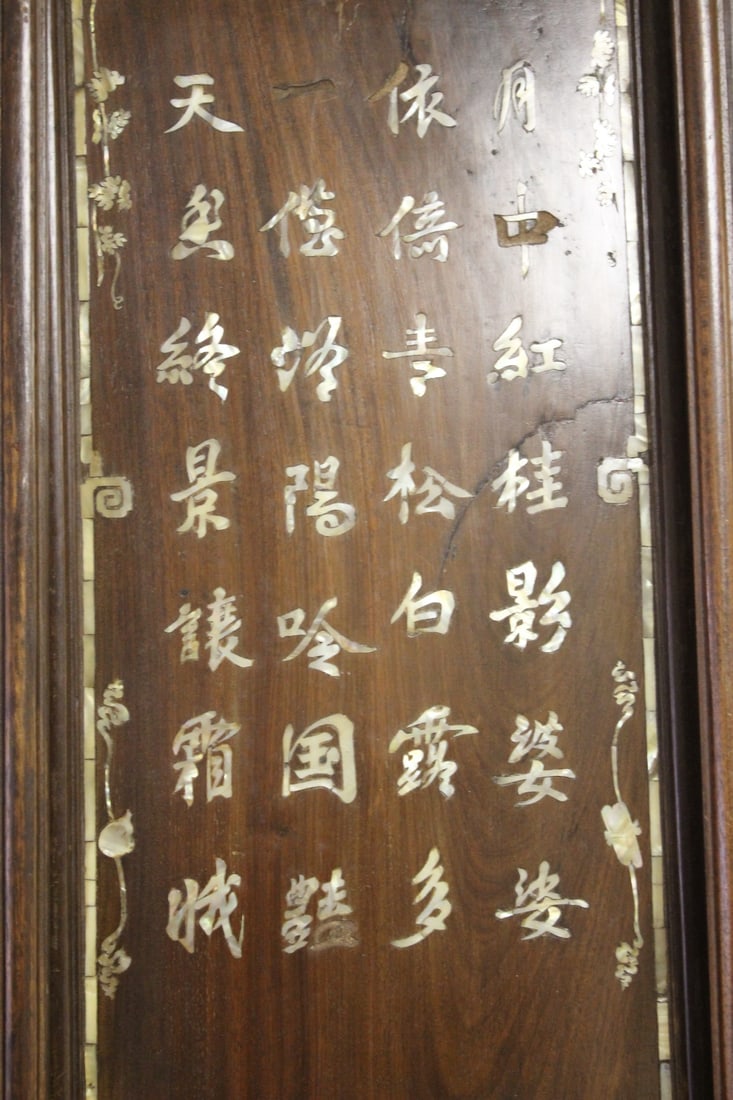 月中紅桂影婆娑
依倚青松白露多
一借洛陽吟国豔
天色終景讓霜娥